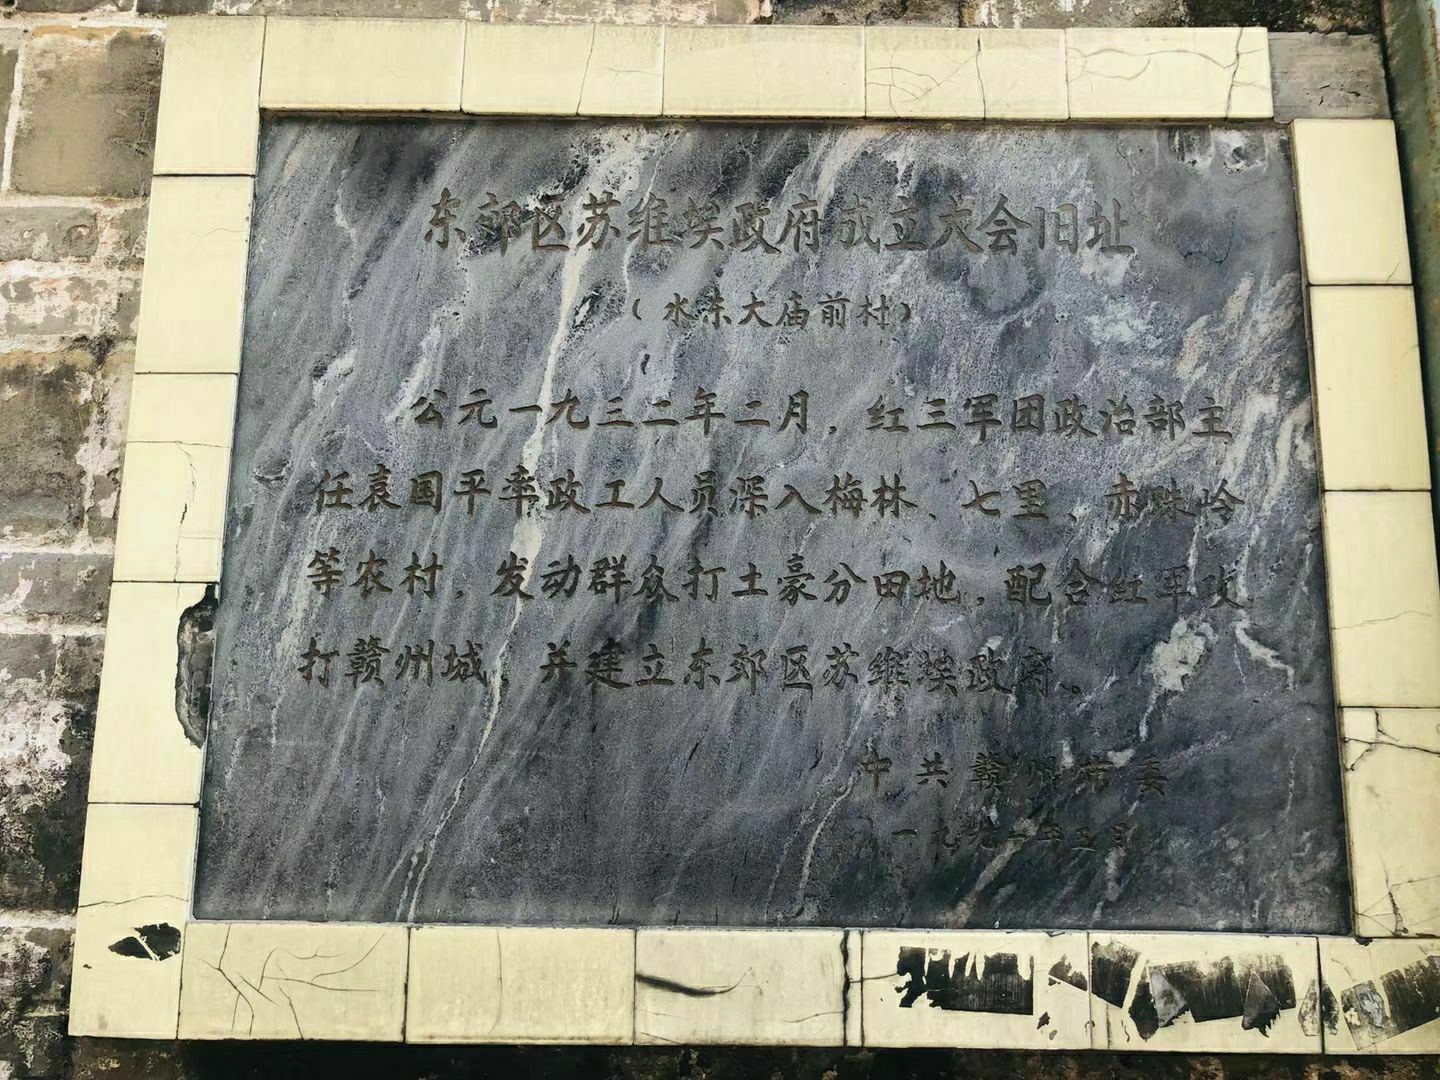 东郊区苏维埃政府成立大会旧址
（水东大庙前村）
公元一九三二年二月，红三军团政治部主
任袁国平率政工人员深入梅林、七里、赤珠岭
等农村，发动群众打土豪分田地，配合红军攻
打赣州城，并建立东郊区苏维埃政府。
中共赣州市委
一九九一年五月